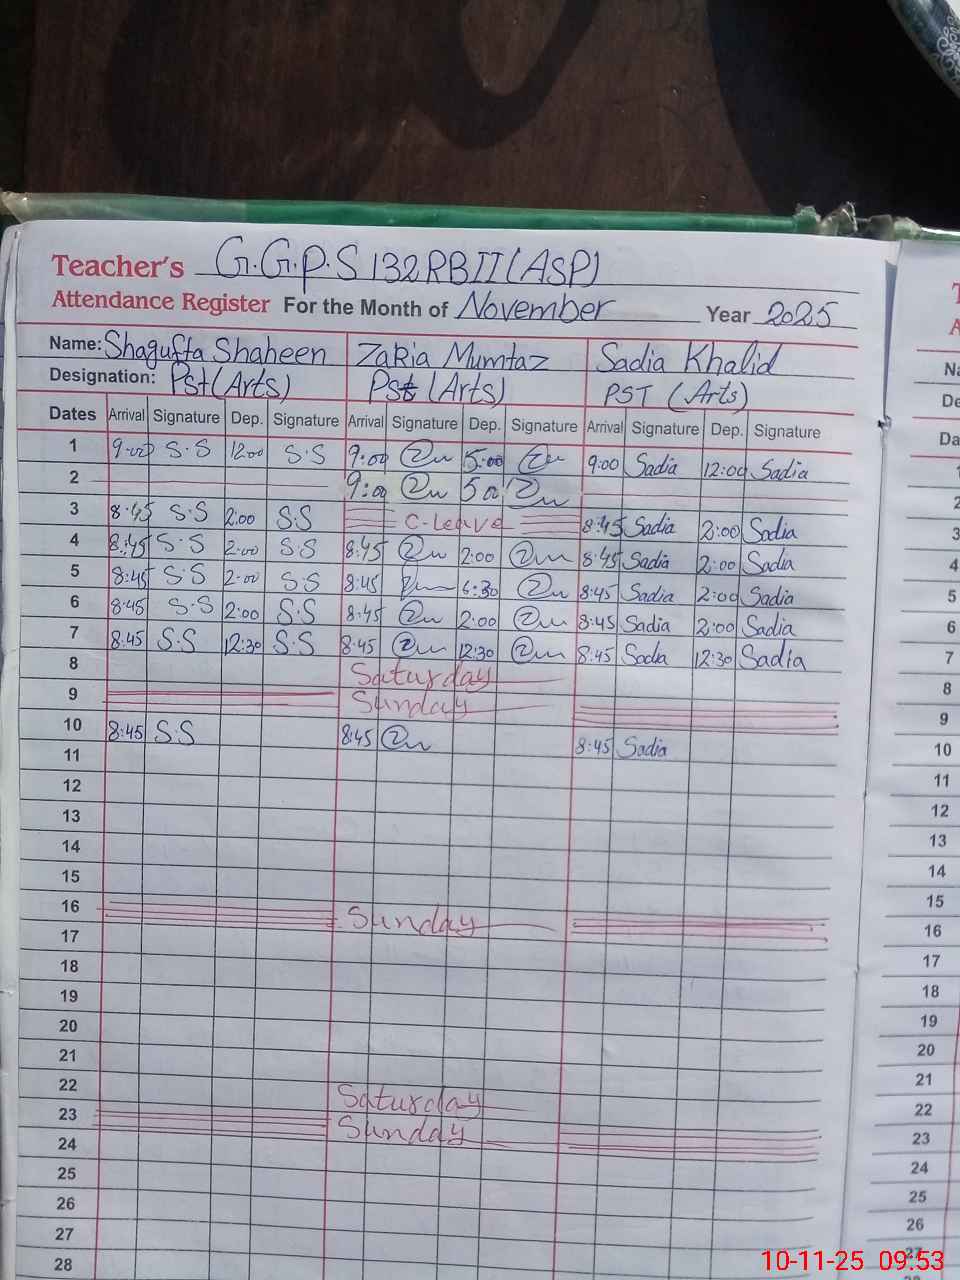 Teacher's G.G.P.S 132RBII(ASP)
Attendance Register For the Month of November Year 2025
Name: Shagufta Shaheen Zakia Mumtaz Sadia Khalid
Designation: Pst(Arts) Pst (Arts) PST (Arts)
Dates Arrival Signature Dep. Signature Arrival Signature Dep. Signature Arrival Signature Dep. Signature
1 9:00 S.S 12:00 S.S 9:00 5:00 9:00 Sadia 12:00 Sadia
2 9:00 5:00
3 8:45 S.S 2:00 S.S C-Leave 8:45 Sadia 2:00 Sadia
4 8:45 S.S 2:00 S.S 8:45 2:00 8:45 Sadia 2:00 Sadia
5 8:45 S.S 2:00 S.S 8:45 8:45 Sadia 2:00 Sadia
6 8:45 S.S 2:00 S.S 8:45 2:00 8:45 Sadia 2:00 Sadia
7 8:45 S.S 12:30 S.S 8:45 12:30 8:45 Sadia 12:30 Sadia
8 Saturday
9 Sunday
10 8:45 S.S 8:45 8:45 Sadia
11
12
13
14
15
16 Sunday
17
18
19
20
21
22 Saturday
23 Sunday
24
25
26
27
28
T
A
Na
De
Da
1
2
3
4
5
6
7
8
9
10
11
12
13
14
15
16
17
18
19
20
21
22
23
24
25
26
27
10-11-25 09:53